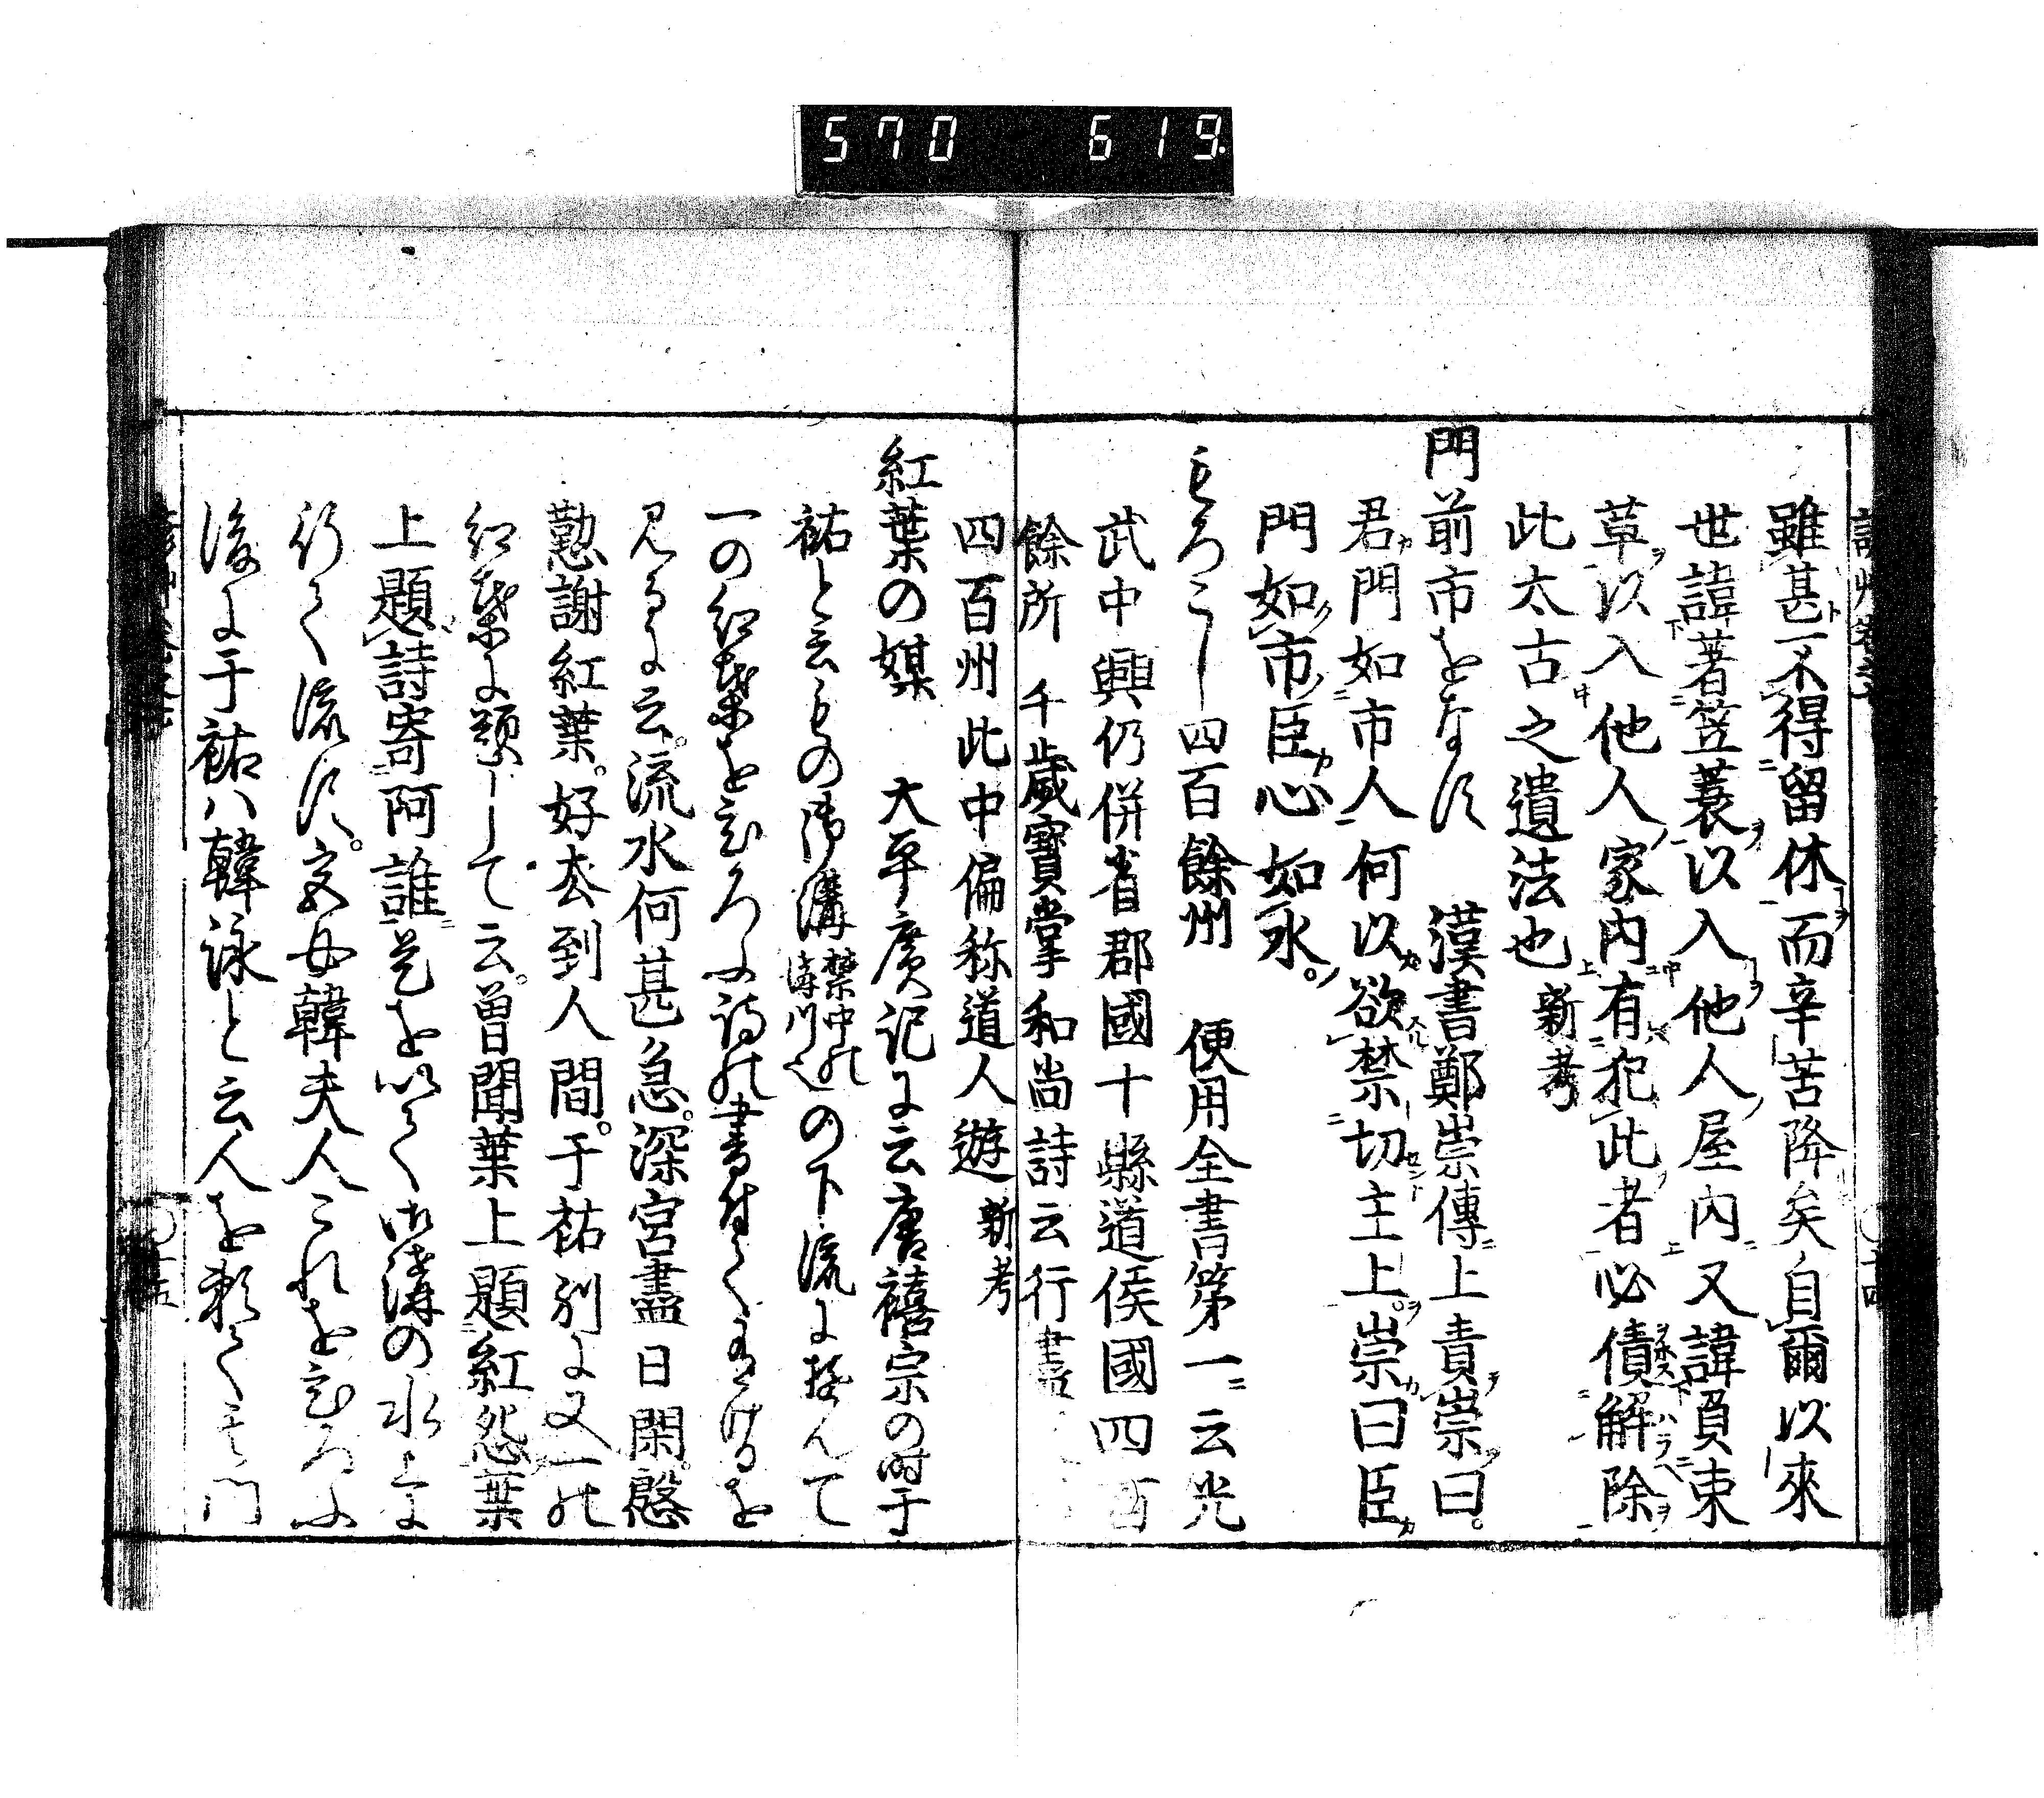 570 619
雖甚不得留休而辛苦降矣自爾以來
世諱著笠蓑以入他人屋内又諱負束
草以入他人家内有犯此者必債解除
此太古之遺法也 新考
門前市をなす 漢書鄭崇傳上責崇曰。
君門如市人何以欲禁切主上。崇曰臣
門如市臣心如水。
もろこし四百餘州 便用全書第一云光
武中興仍併省郡國十縣道侯國四百
餘所 千歲寶掌和尚詩云行盡
四百州此中偏称道人遊 新考
紅葉の媒 大平廣記に云唐禧宗の時于
祐と云もの御溝禁中の溝川也の下流に遊んて
一の紅葉をひろふ詩の書付て有けるを
見るに云。流水何甚急。深宮盡日閑。慇
懃謝紅葉。好去到人間。于祐別に又一の
紅葉に題して云。曽聞葉上題紅怨葉
上題詩寄阿誰是を以て御溝の水上に
行て流す。宮女韓夫人これをひろふ
後に于祐ハ韓泳と云人を頼て其門